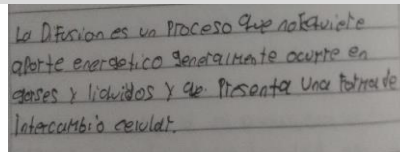 La Difusion es un Proceso que no requiere
aporte energetico generalmente ocurre en
gases y liquidos y que Presenta una forma de
Intercambio celular.